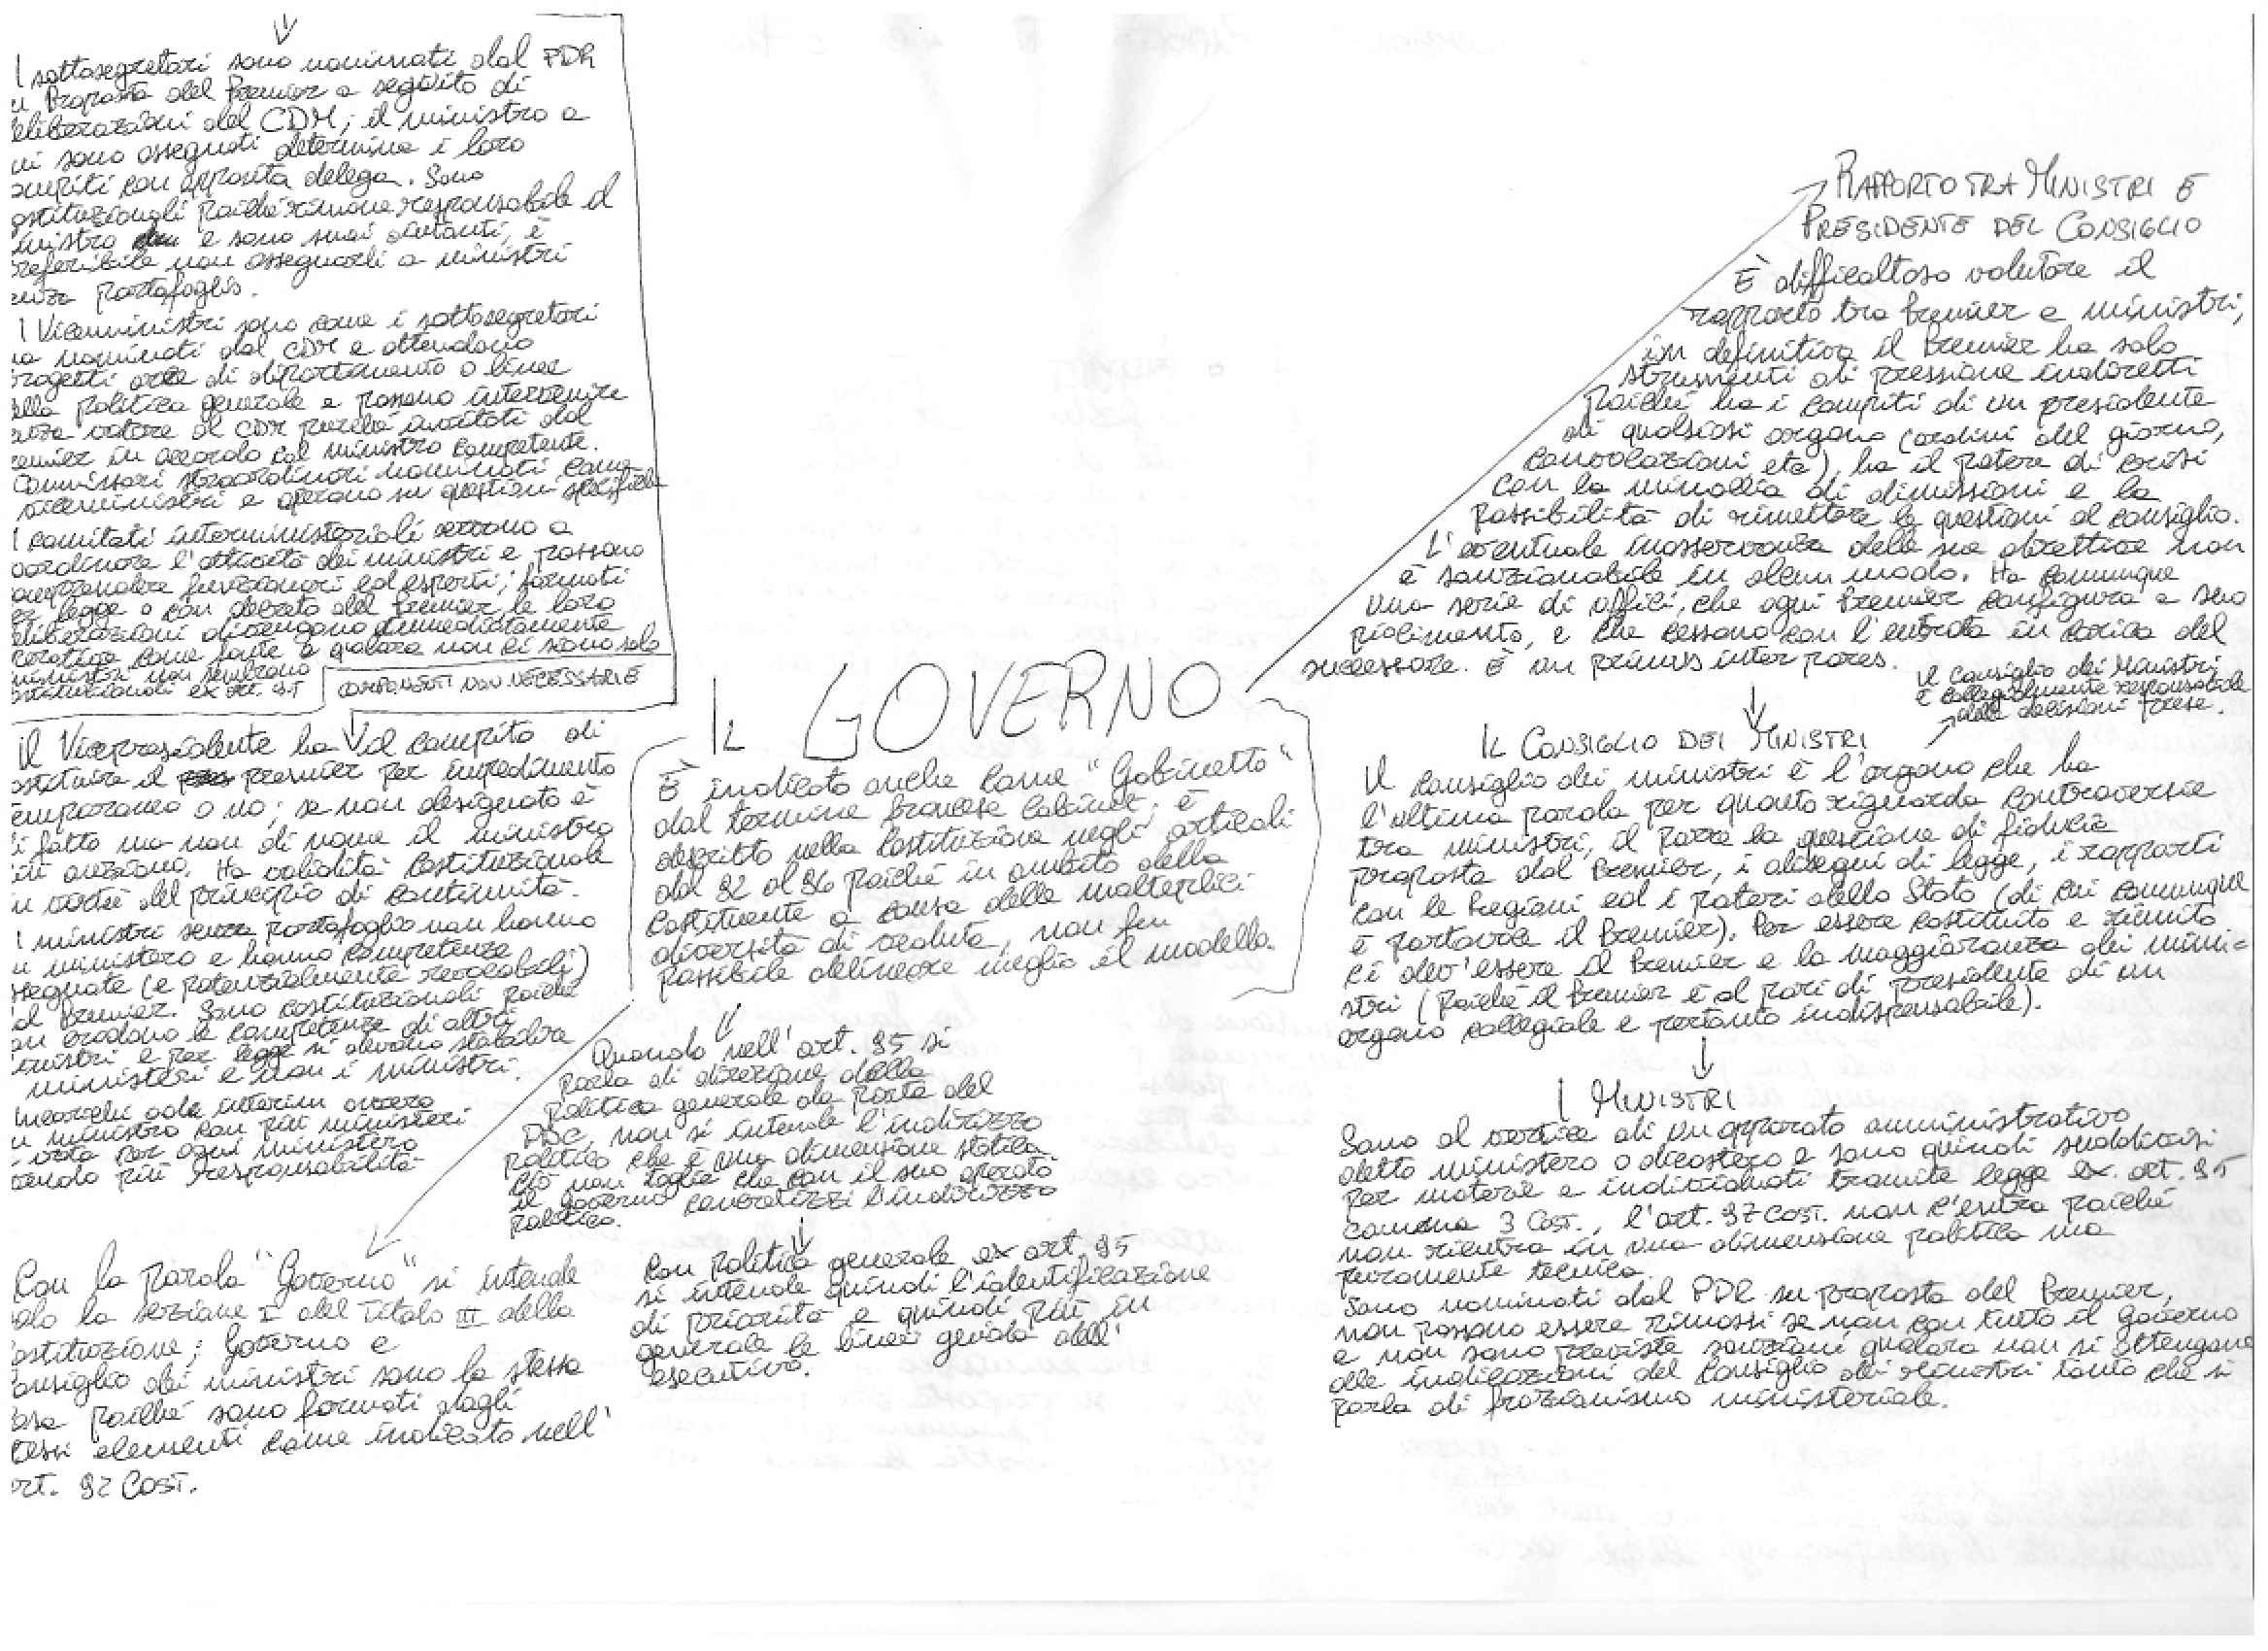 I sottosegretari sono nominati dal PDR
su proposta del Premier a seguito di
deliberazioni del CDM; il ministro a
cui sono assegnati determina i loro
compiti con apposita delega. Sono
costituzionali poiché rimane responsabile il
ministro e sono suoi aiutanti, è
preferibile non assegnarli a ministri
senza portafoglio.
I Viceministri sono come i sottosegretari
ma nominati dal CDM e attendono
progetti di dipartimento o linee
della politica generale e possono intervenire
senza votare al CDM purché invitati dal
Premier in accordo col ministro competente.
Commissari straordinari nominati come
viceministri e operano su questioni specifiche
I comitati interministeriali servono a
coordinare l'attività dei ministri e possono
comprendere funzionari ed esperti; formati
per legge o con decreto del Premier le loro
deliberazioni divengono immediatamente
operative come fonte e qualora non ci siano solo
ministri non sembrano
costituzionali ex art. 95
COMPONENTI NON NECESSARIE
il Vicepresidente ha il compito di
sostituire il premier per impedimento
temporaneo o no; se non designato è
di fatto ma non di nome il ministro
più anziano. Ha validità costituzionale
in virtù del principio di continuità.
I ministri senza portafoglio non hanno
un ministero e hanno competenze
assegnate (e potenzialmente revocabili)
dal Premier. Sono costituzionali poiché
non erodono le competenze di altri
ministri e per legge si devono stabilire
i ministeri e non i ministri.
Incarichi ad interim ovvero
un ministro con più ministeri
vota per ogni ministero
avendo più responsabilità
Con la parola "Governo" si intende
solo la sezione I del Titolo III della
Costituzione; Governo e
Consiglio dei ministri sono la stessa
cosa poiché sono formati dagli
stessi elementi come indicato nell'
art. 92 COST.
IL GOVERNO
È indicato anche come "Gabinetto"
dal termine francese Cabinet; è
descritto nella Costituzione negli articoli
dal 92 al 96 poiché in ambito della
Costituente a causa delle molteplici
diversità di vedute, non fu
possibile delineare meglio il modello.
Quando nell'art. 95 si
parla di direzione della
politica generale da parte del
PDC, non si intende l'indirizzo
politico che è una dimensione statica.
Ciò non toglie che con il suo operato
il governo concretizzi l'indirizzo
politico.
Con politica generale ex art. 95
si intende quindi l'identificazione
di priorità e quindi più in
generale le linee guida dell'
esecutivo.
RAPPORTO TRA MINISTRI E
PRESIDENTE DEL CONSIGLIO
È difficoltoso valutare il
rapporto tra Premier e ministri,
in definitiva il Premier ha solo
strumenti di pressione indiretti
poiché ha i compiti di un presidente
di qualsiasi organo (ordini del giorno,
convocazioni etc), ha il potere di crisi
con la minaccia di dimissioni e la
possibilità di rimettere le questioni al consiglio.
L'eventuale inosservanza delle sue direttive non
è sanzionabile in alcun modo. Ha comunque
una serie di uffici, che ogni Premier configura a suo
piacimento, e che cessano con l'entrata in carica del
successore. È un primus inter pares.
Il Consiglio dei Ministri
è collegialmente responsabile
delle decisioni prese.
IL CONSIGLIO DEI MINISTRI
Il consiglio dei ministri è l'organo che ha
l'ultima parola per quanto riguarda controversie
tra ministri, il porre la questione di fiducia
proposta dal Premier, i disegni di legge, i rapporti
con le Regioni ed i poteri dello Stato (di cui comunque
è portavoce il Premier). Per essere costituito e riunito
ci dev'essere il Premier e la maggioranza dei mini-
stri (poiché il Premier è al pari di presidente di un
organo collegiale e pertanto indispensabile).
I MINISTRI
Sono al vertice di un apparato amministrativo
detto ministero o dicastero e sono quindi suddivisi
per materie e individuati tramite legge ex. art. 95
comma 3 COST., l'art. 97 COST. non c'entra poiché
non rientra in una dimensione politica ma
puramente tecnica.
Sono nominati dal PDR su proposta del Premier,
non possono essere rimossi se non con tutto il Governo
e non sono previste sanzioni qualora non si attengano
alle indicazioni del Consiglio dei Ministri tanto che si
parla di frazionismo ministeriale.